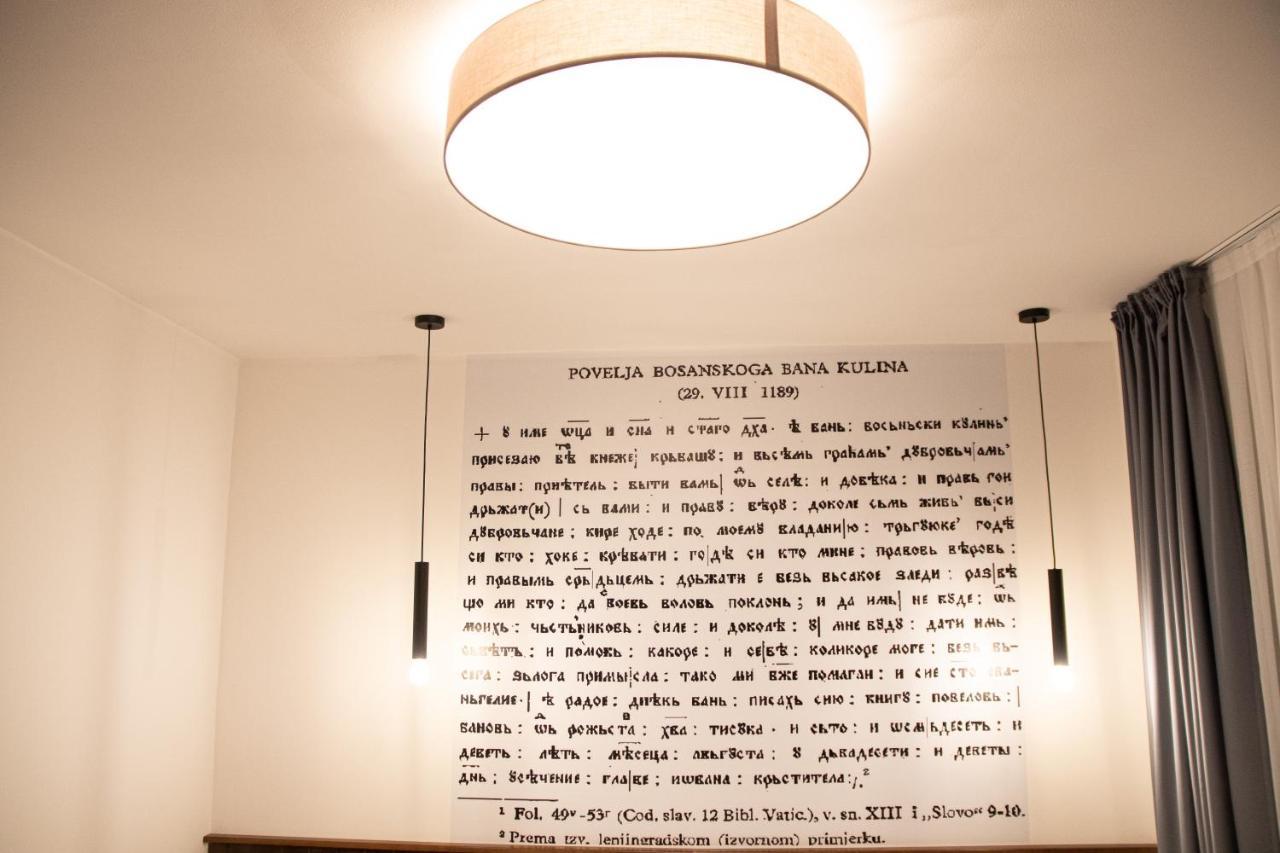 POVELJA BOSANSKOGA BANA KULINA
(29. VIII 1189)
+ ꙋ име ѿца и сна и стаго дха· ѣ бань: босьньски кꙋлинь'
присезаю тебѣ кнеже| крьвашꙋ: и вьсѣмь грађамь' дꙋбровьч|амь'
правы: приѣтель: быти вамь| ѿь селѣ: и довѣка: и правь гои
дрьжат(и) | сь вами: и правꙋ: вѣрꙋ: доколе сьмь живь' вь|си
дꙋбровьчане: кире ходе: по моемꙋ владани|ю: трьгꙋюке' годѣ
си кто: хоке: крѣвати: го|дѣ си кто мине: правовь вѣровь:
и правымь срь|дьцемь: дрьжати е безь вьсакое зледи: раз|вѣ
що ми кто: да своевь воловь поклонь; и да имь| не бꙋде; ѿь
моихь: чьстьниковь: силе: и доколѣ: ꙋ| мне бꙋдꙋ: дати имь:
сьвѣть: и помокь: какоре: и се|бѣ: коликоре моге: безь вь-
сега: зьлога примы|сла: тако ми бже помагаи: и сие сто ева-
ньгелие·| ѣ радое: диѣкь бань: писахь сию: книгꙋ: повеловь:|
бановь: ѿь рожьства: хва: тисꙋка· и сьто: и ѡсм|ьдесеть: и
деветь: лѣть: мѣсеца: авьгꙋста: ꙋ дьвадесети: и девети:
днь; ꙋсѣчение: гла|ве: иѡвана: крьстителѣ:/.²
¹ Fol. 49ᵛ-53ʳ (Cod. slav. 12 Bibl. Vatic.), v. sn. XIII i „Slovo“ 9-10.
² Prema tzv. lenjingradskom (izvornom) primjerku.